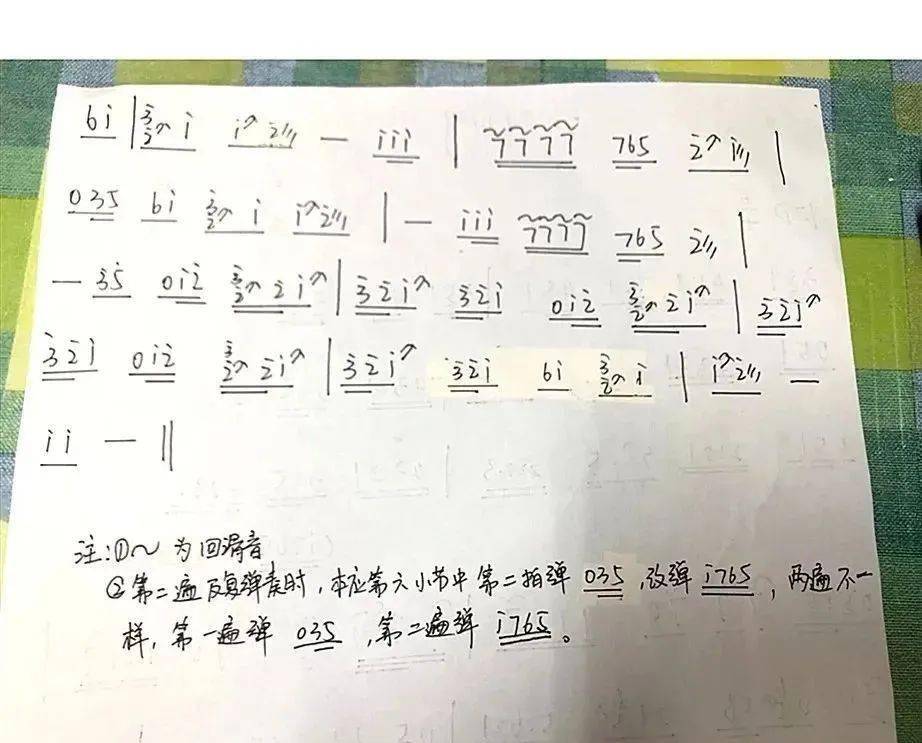 6i | 3̇2̇^ i i^ 2̇/// — iii | 7̃7̃7̃7̃ 765 2̇^ i/// |
035 6i 3̇2̇^ i i^ 2̇/// | — iii 7̃7̃7̃7̃ 765 2̇/// |
— 35 0i2̇ 3̇2̇^ 2̇ i^ | 3̇2̇i^ 3̇2̇i 0i2̇ 3̇2̇^ 2̇ i^ | 3̇2̇i^
3̇2̇i 0i2̇ 3̇2̇^ 2̇i^ | 3̇2̇i^ 3̇2̇i 6i 3̇2̇^ i | i^2̇/// —
ii — ‖
注:①~为回滑音
②第二遍反复弹奏时,本应第六小节中第二拍弹 035,改弹 i765,两遍不一
样,第一遍弹 035,第二遍弹 i765。